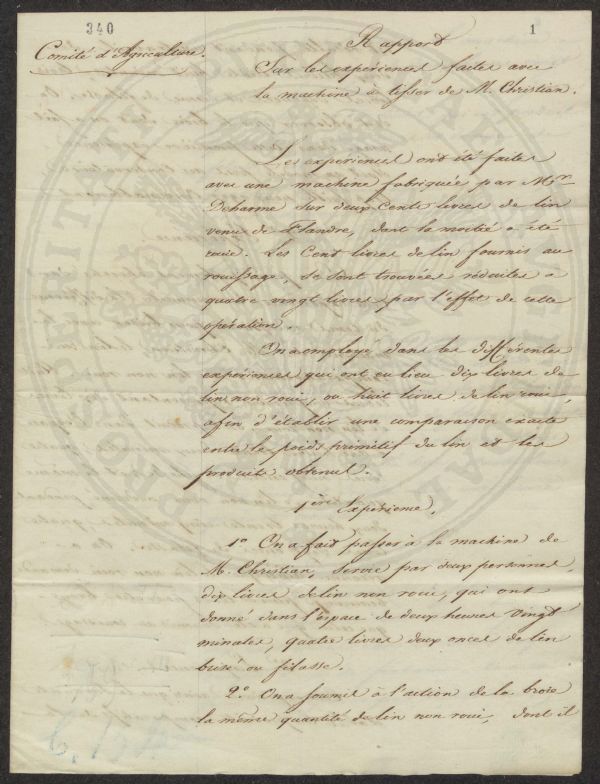 340
1
Comité d'Agriculture.
Rapport
Sur les expériences faites avec
la machine à tisser de M. Christian.
Les expériences ont été faites
avec une machine fabriquée par Mr.
Deharme sur deux cents livres de lin
venu de Flandre, dont la moitié a été
rouie. Les Cent livres de lin fournis au
rouissage, se sont trouvées réduites à
quatre vingt livres par l'effet de cette
opération.
On a employé dans les différentes
expériences qui ont eu lieu dix livres de
lin non roui, ou huit livres de lin roui,
afin d'établir une comparaison exacte
entre le poids primitif du lin et les
produits obtenus.
1ère Expérience.
1o On a fait passer à la machine de
M. Christian, servie par deux personnes,
dix livres de lin non roui, qui ont
donné dans l'espace de deux heures vingt
minutes, quatre livres deux onces de lin
brisé ou filasse.
2o. On a soumis à l'action de la broie
la même quantité de lin non roui, dont il